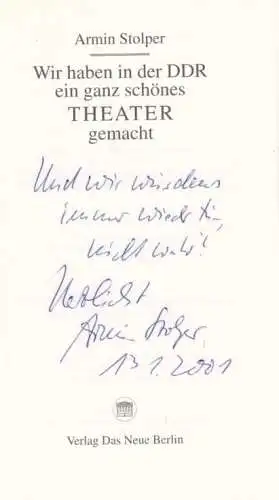 Armin Stolper
Wir haben in der DDR
ein ganz schönes
THEATER
gemacht
Und wir würdens
immer wieder tun,
nicht wahr!
Herzlichst
Armin Stolper
13.1.2001
Verlag Das Neue Berlin